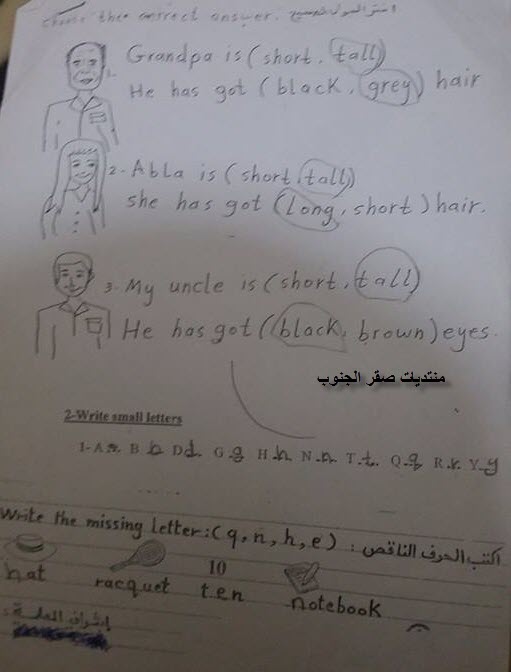 Choose the correct answer. اختر الجواب الصحيح
1- Grandpa is (short, tall)
He has got (black, grey) hair
2- Abla is (short, tall)
she has got (long, short) hair.
3- My uncle is (short, tall)
He has got (black, brown) eyes.
منتديات صقر الجنوب
2-Write small letters
1- A a B b D d G g H h N n T t Q q R r Y y
Write the missing letter: (q, n, h, e) : اكتب الحرف الناقص
10
hat racquet ten notebook